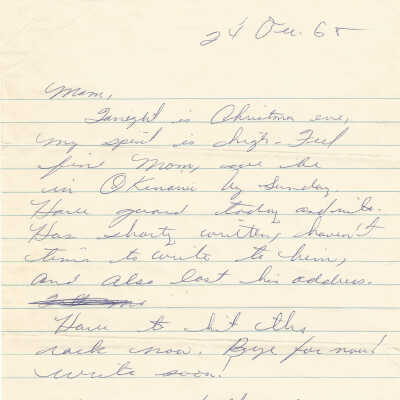 24 Dec. 65
Mom,
Tonight is Christmas eve,
my spirit is high - Feel
fine Mom, we be
in Okinawa by Sunday.
Have guard today and nite.
Has shorty written, haven't
time to write to him,
and also lost his address.
Have to hit the
rack now. Bye for now!
write soon!